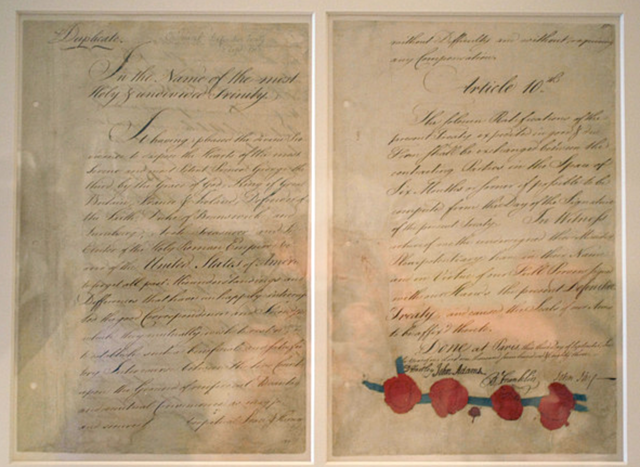 Duplicate.
In the Name of the most
Holy & undivided Trinity.
It having pleased the divine Pro
vidence to dispose the Hearts of the most
Serene and most Potent Prince George the
third, by the Grace of God, King of Great
Britain, France & Ireland, Defender of
the Faith, Duke of Brunswick and
Lunebourg, Arch Treasurer and
Elector of the Holy Roman Empire &c
and of the United States of America
to forget all past Misunderstandings and
Differences that have unhappily interrup
ted the good Correspondence and
which they mutually wish to
establish such a beneficial and satisfac
tory Intercourse between the two Countries
upon the Ground of reciprocal
and mutual Convenience as may
and secure
without Difficulty and without requiring
any Compensation.
Article 10th
The solemn Ratifications of the
present Treaty expedited in good & due
Form shall be exchanged between the
contracting Parties in the Space of
Six Months or sooner if possible to be
computed from the Day of the Signature
of the present Treaty. In Witness
whereof we the undersigned their Ministers
Plenipotentiary have in their Name
and in Virtue of our Full Powers signed
with our Hands the present Definitive
Treaty, and caused the Seals of our Arms
to be affix'd thereto.
Done at Paris this third day of September
D Hartley John Adams. B Franklin John Jay